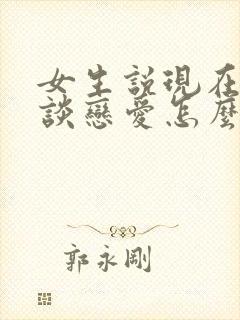 女生説現在
談戀愛怎麽
郭永剛